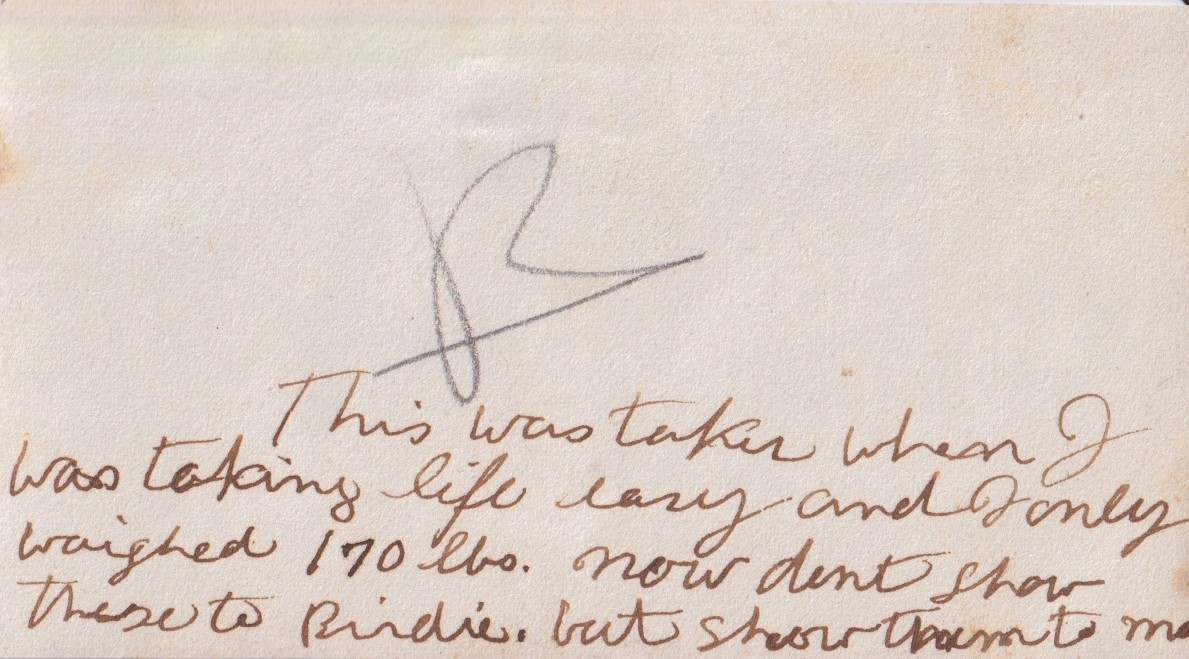 R
This was taken when I
was taking life easy and I only
waighed 170 lbs. now dont show
these to Birdie. but show them to ma